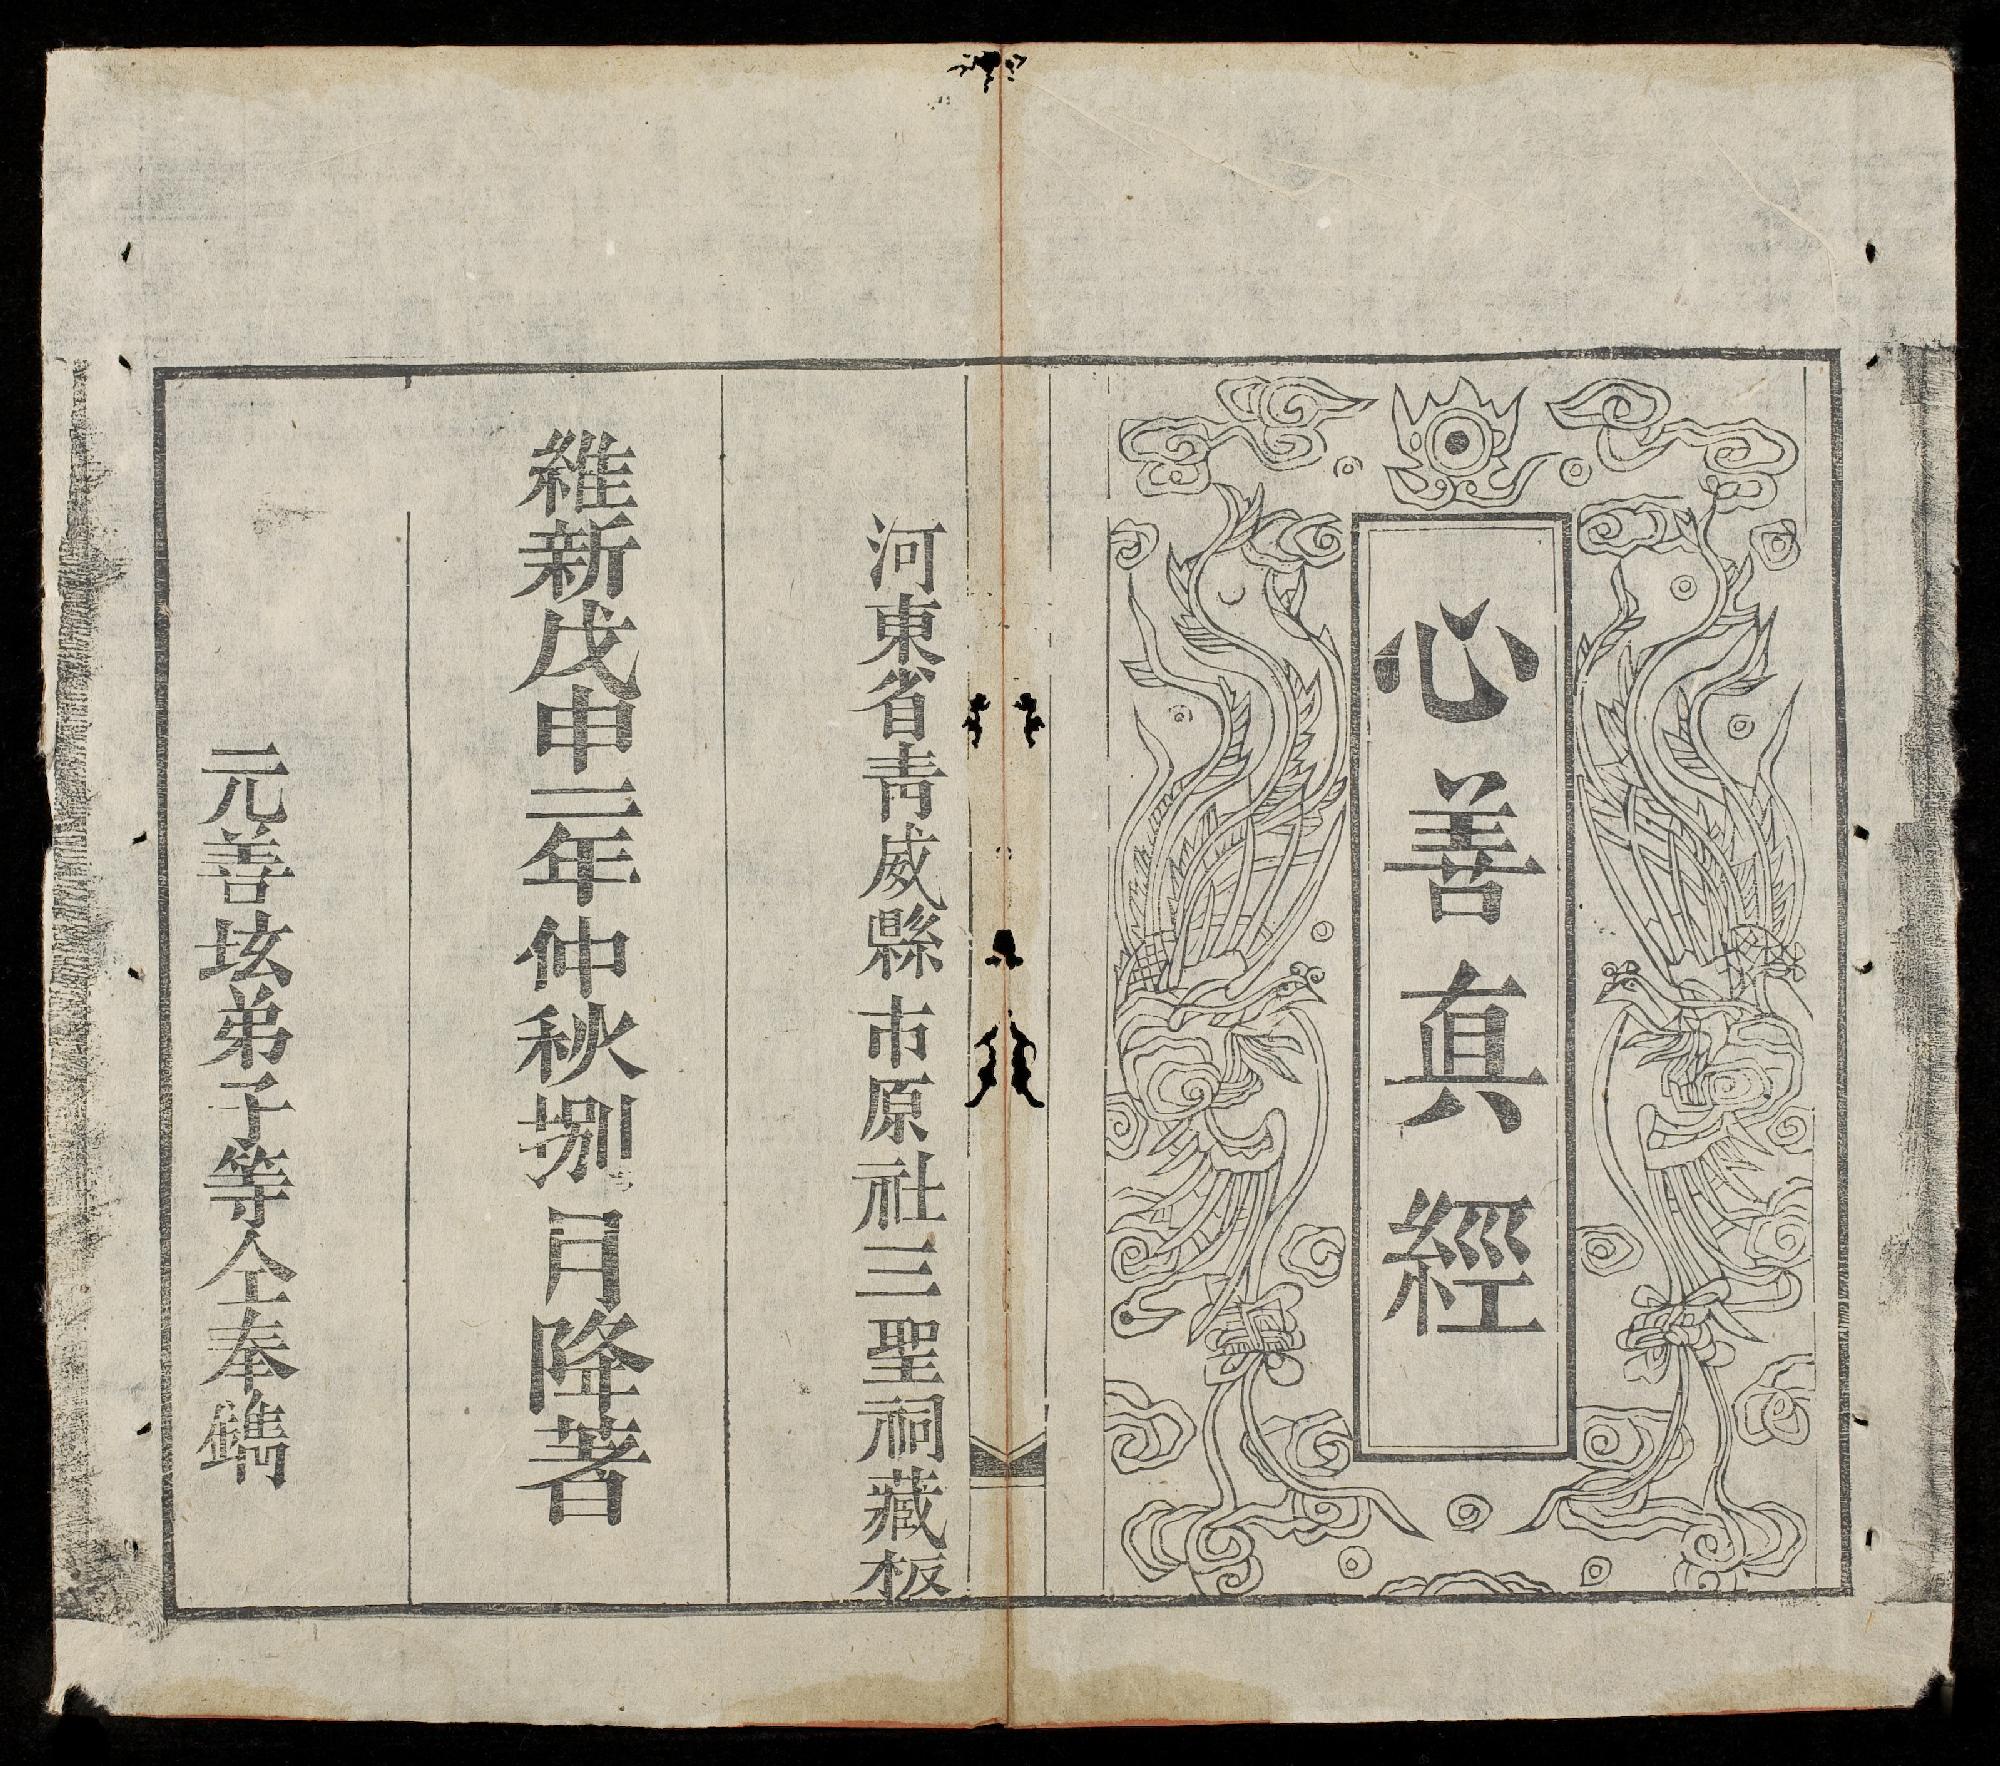 心善真經
河東省靑威縣市原社三聖祠藏板
維新戊申二年仲秋捌月降著
元善坛弟子等仝奉鐫